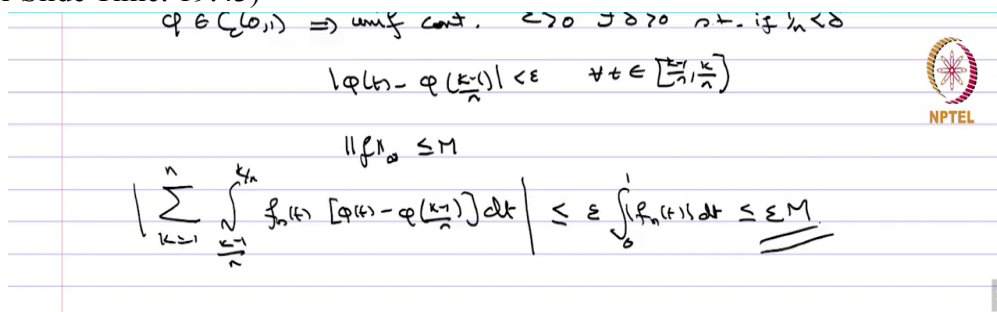 r Slide Time: 19:43)
φ ∈ C_c(0,1) ⇒ unif cont. ε>0 ∃ δ>0 s.t. if 1/n < δ
|φ(t) - φ((k-1)/n)| < ε ∀ t ∈ [(k-1)/n, k/n]
NPTEL
||f||_∞ ≤ M
| ∑_{k=1}^{n} ∫_{(k-1)/n}^{k/n} f_n(t) [φ(t) - φ((k-1)/n)] dt | ≤ ε ∫_0^1 |f_n(t)| dt ≤ εM